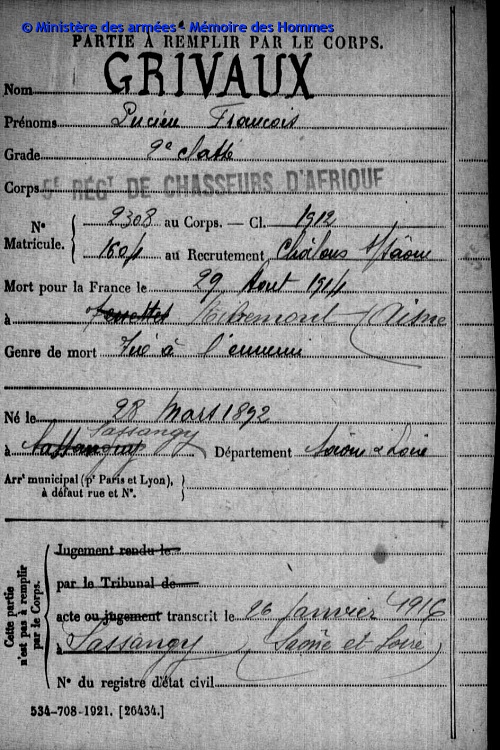 © Ministère des armées - Mémoire des Hommes
PARTIE À REMPLIR PAR LE CORPS.
Nom GRIVAUX
Prénoms Lucien François
Grade 2e Classe
Corps 5e RÉGT DE CHASSEURS D'AFRIQUE
N° Matricule. { 2308 au Corps. — Cl. 1912
1604 au Recrutement Châlons s/Saône
Mort pour la France le 29 Août 1914
à Ribemont (Aisne
Genre de mort Tué à l'ennemi
Né le 28 Mars 1892
Sassangy
à Sassanguy Département Saône & Loire
Arrt municipal (pr Paris et Lyon), }
à défaut rue et N°.
Cette partie n'est pas à remplir par le Corps.
Jugement rendu le
par le Tribunal de
acte ou jugement transcrit le 26 janvier 1916
à Sassangy (Saône et Loire)
N° du registre d'état civil
534-708-1921. [26434.]